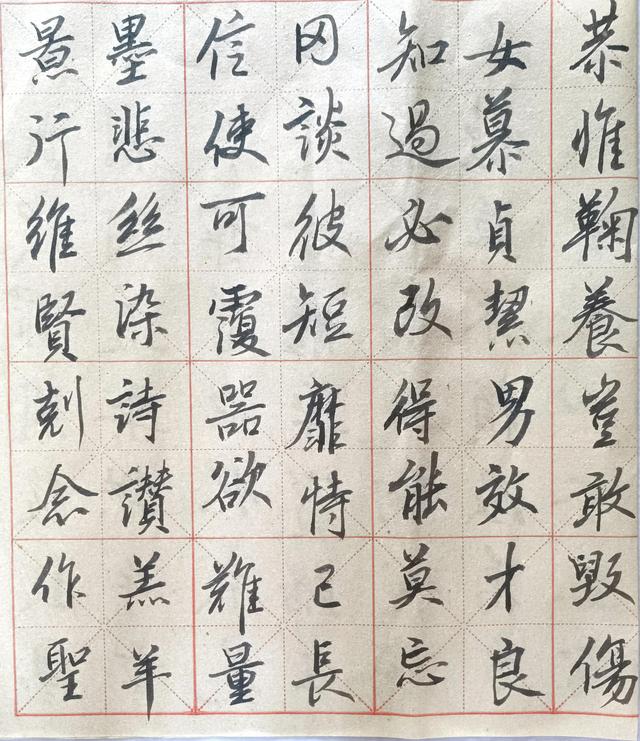 恭惟鞠養豈敢毀傷
女慕貞絜男效才良
知過必改得能莫忘
罔談彼短靡恃己長
信使可覆器欲難量
墨悲絲染詩讚羔羊
景行維賢剋念作聖